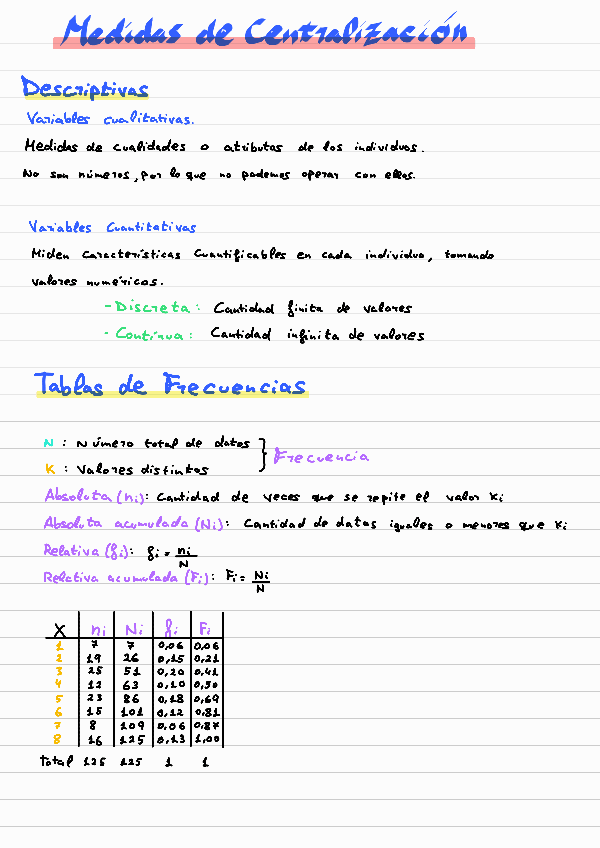 Medidas de Centralización
Descriptivas
Variables cualitativas.
Medidas de cualidades o atributos de los individuos.
No son números, por lo que no podemos operar con ellos.
Variables Cuantitativas
Miden características cuantificables en cada individuo, tomando
valores numéricos.
- Discreta: Cantidad finita de valores
- Continua: Cantidad infinita de valores
Tablas de Frecuencias
N : Número total de datos
K : Valores distintos
Frecuencia
Absoluta (ni): Cantidad de veces que se repite el valor Ki
Absoluta acumulada (Ni): Cantidad de datos iguales o menores que Ki
Relativa (fi): fi = ni/N
Relativa acumulada (Fi): Fi = Ni/N
X ni Ni fi Fi
1 7 7 0,06 0,06
2 19 26 0,15 0,21
3 25 51 0,20 0,41
4 12 63 0,10 0,50
5 23 86 0,18 0,69
6 15 101 0,12 0,81
7 8 109 0,06 0,87
8 16 125 0,13 1,00
Total 125 125 1 1